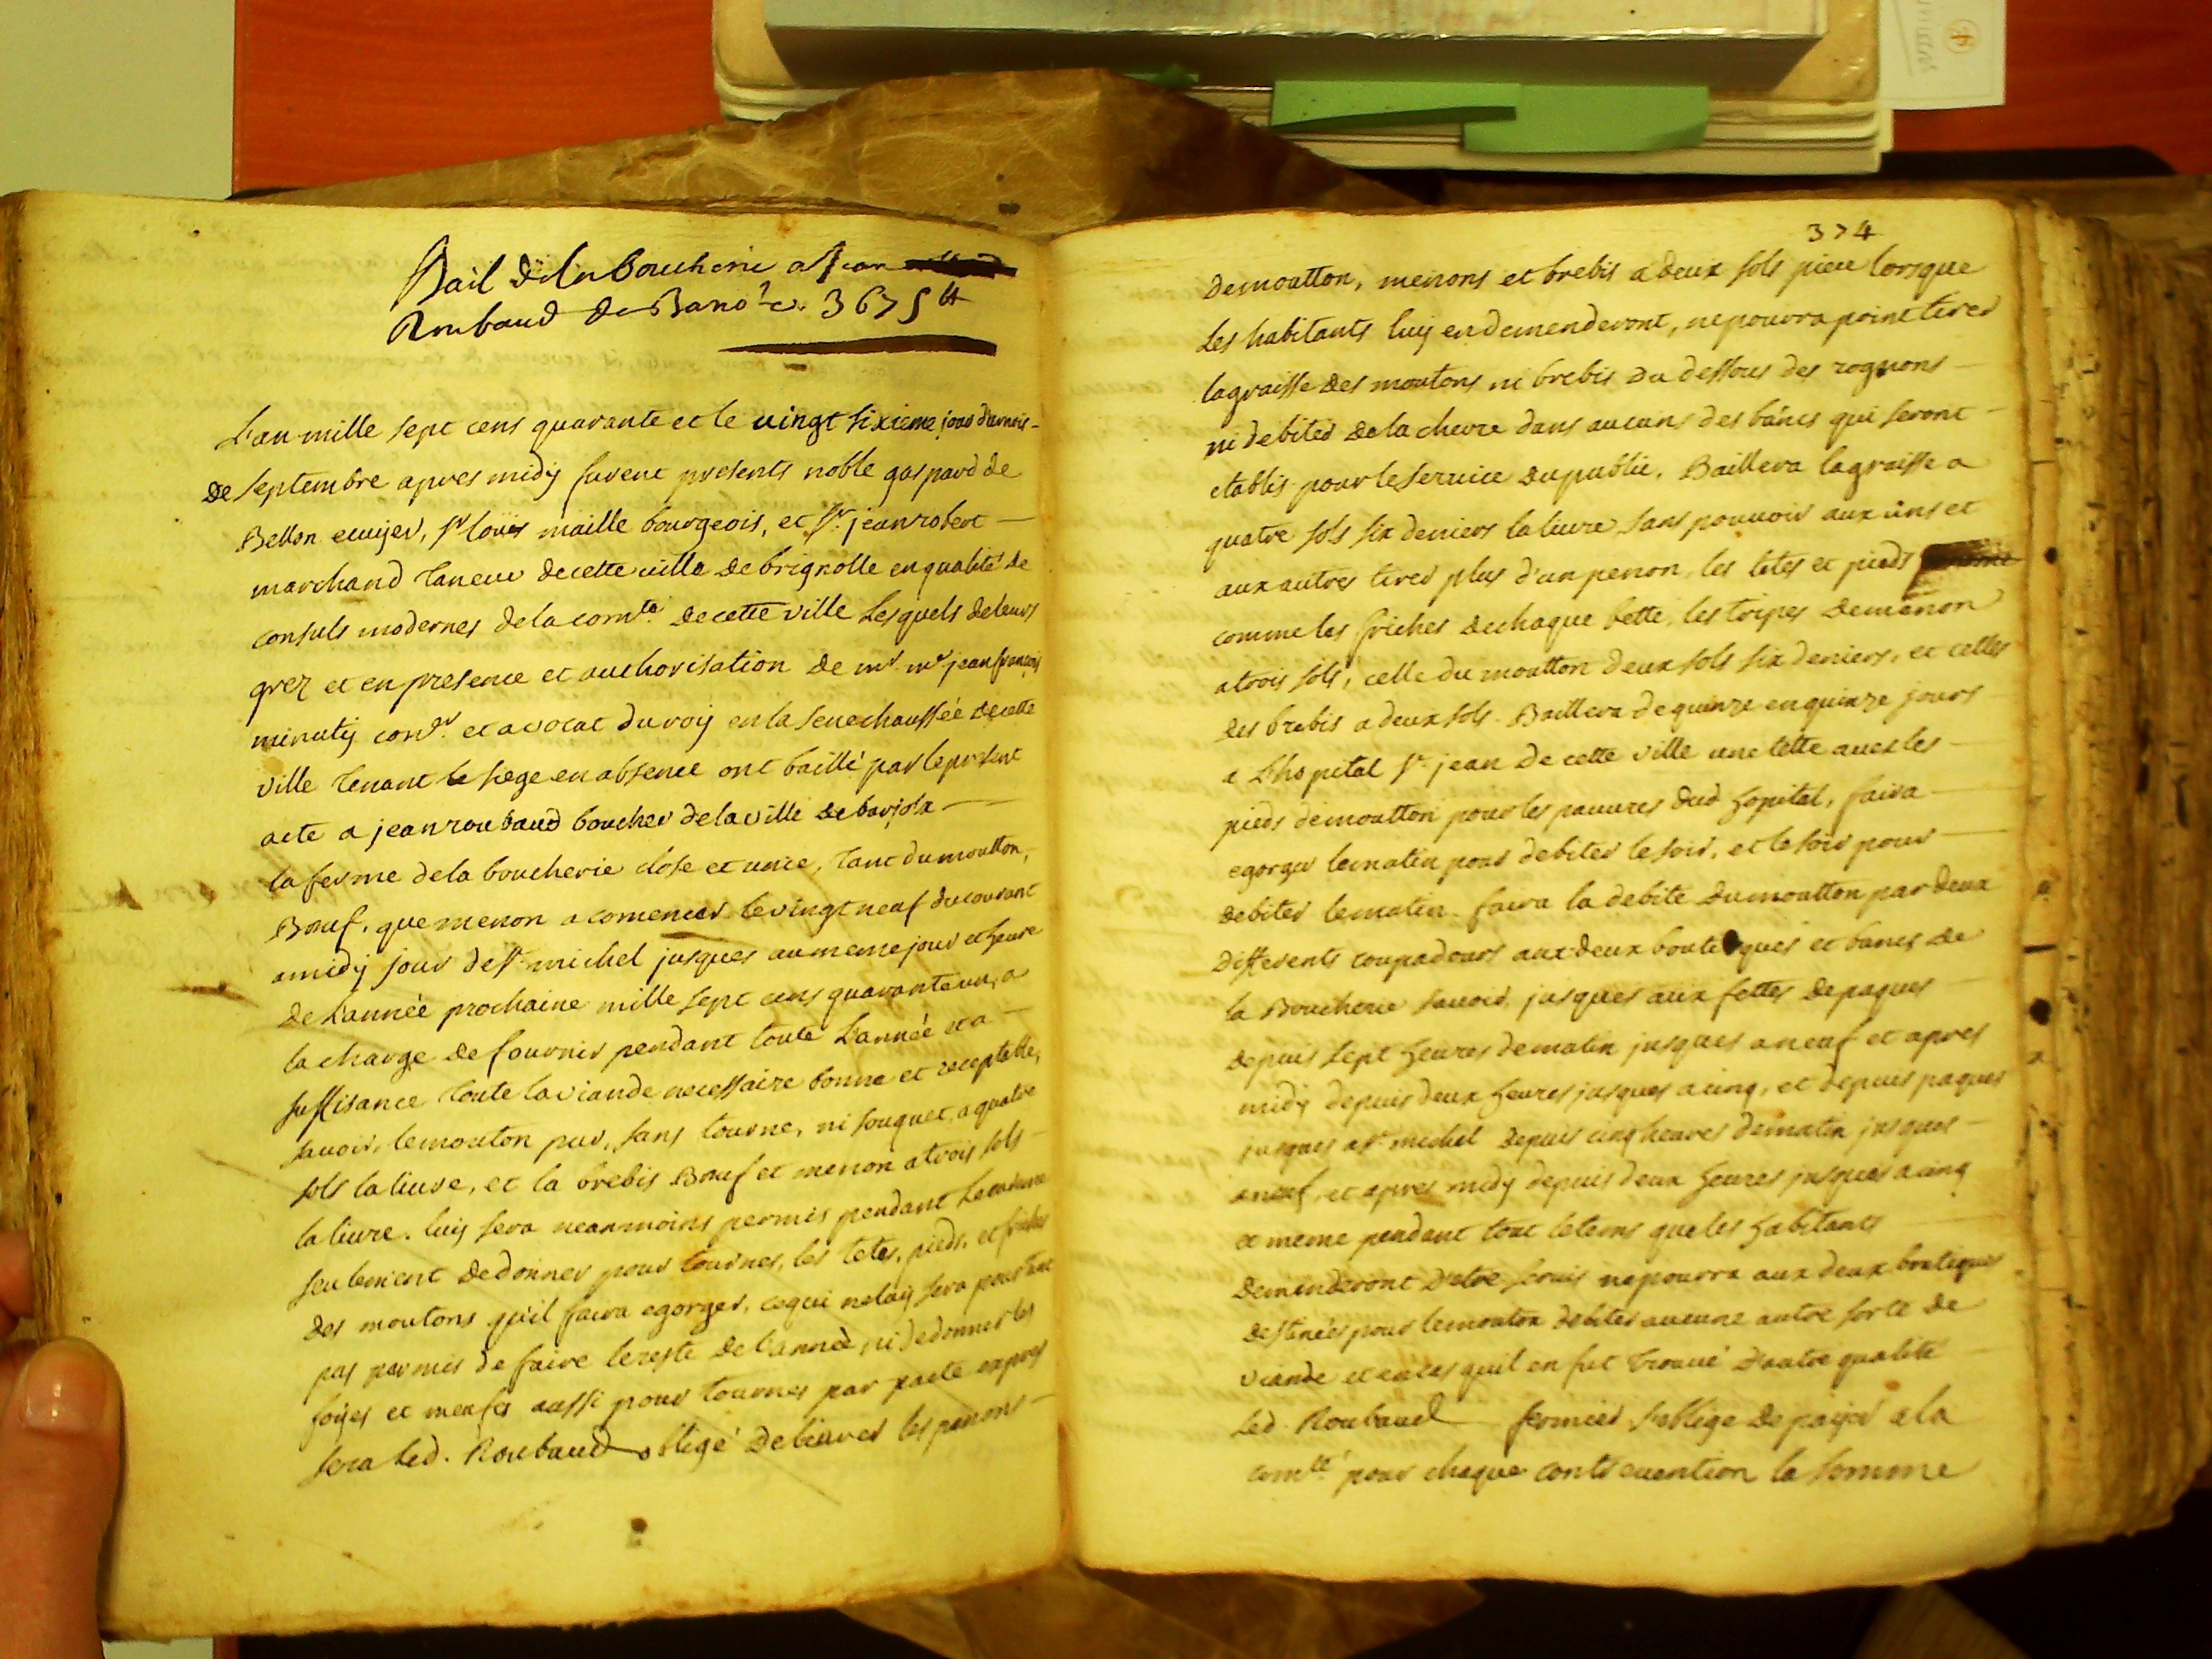 Bail de la boucherie a Jean
Roubaud de 3675 ₶
L'an mille sept cens quarante et le vingt sixieme jour du mois
de septembre apres midy furent presents noble gaspard de
Bellon ecuyer, sr louis maille bourgeois, et sr. jean robert
marchand taneur de cette ville de brignolle en qualité de
consuls modernes de la comté. de cette ville Lesquels de leurs
grez et en presence et authorisation de mr. me jean françois
minuty conr. et avocat du roy en la senechaussée de cette
ville tenant le siege en absence ont baillé par le present
acte a jean roubaud boucher de la ville de barjols
la ferme de la boucherie close et unie, tant du moutton,
Bœuf, que menon a comencer le vingt neuf du courant
a midy jour de st. michel jusques au meme jour et heure
de L'année prochaine mille sept cens quarante un, a
la charge de fournir pendant toute L'année et a
suffisance toute la viande necessaire bonne et receptable,
savoir, le mouton pur, sans tourne, ni souquet, a quatre
sols la livre, et la brebis Bœuf et menon a trois sols
la livre. luy sera neanmoins permis pendant Le careme
seulement de donner pour tournes, les tetes, pieds, et friches
des moutons qu'il faira egorger, ce qui ne luy sera pourtant
pas permis de faire le reste de l'année, ni de donner les
foyes et meufes aussi pour tournes par pacte expres
sera led. Roubaud obligé de livrer les penons
374
de moutton, menons et brebis a deux sols piece lorsque
Les habitants luy en demenderont, ne pourra point tirer
la graisse des moutons ni brebis du dessous des rognons
ni debiter de la chevre dans aucuns des bancs qui seront
etablis pour le service du public. Baillera la graisse a
quatre sols six deniers la livre, sans pouvoir aux uns et
aux autres tirer plus d'un penon, les tetes et pieds
comme les friches de chaque bette, les tripes de menon
a trois sols, celle du moutton deux sols six deniers, et celles
des brebis a deux sols. Baillera de quinze en quinze jours
a L'hopital st. jean de cette ville une tette avec les
pieds de moutton pour les pauvres dud. hopital, faira
egorger le matin pour debiter le soir, et le soir pour
debiter le matin. faira la debite du moutton par deux
differents coupadours aux deux boutiques et bancs de
la Boucherie savoir, jusques aux fettes de paques
depuis sept heures de matin jusques a neuf et apres
midy depuis deux heures jusques a cinq, et depuis paques
jusques a st. michel depuis cinq heures de matin jusques
a neuf, et apres midy depuis deux heures jusques a cinq
et meme pendant tout le tems que les habitants
demenderont d'etre servis ne pourra aux deux boutiques
destinées pour le mouton debiter aucune autre sorte de
viande et en cas quil en fut trouvé d'autre qualité
Led. Roubaud fermier s'oblige de payer a la
comté. pour chaque contrevention la somme